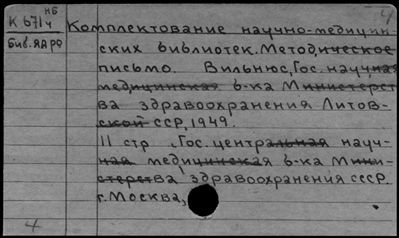 4
нб
К 671ч Комплектование научно-медицин-
Биб. ЯАРО ских библиотек. Методическое
письмо. Вильнюс, Гос. научная
медицинская б-ка Министерст
ва здравоохранения Литов-
ской ССР, 1949.
11 стр Гос. центральная науч-
ная медицинская б-ка Мини-
стерства здравоохранения СССР.
г. Москва,
4